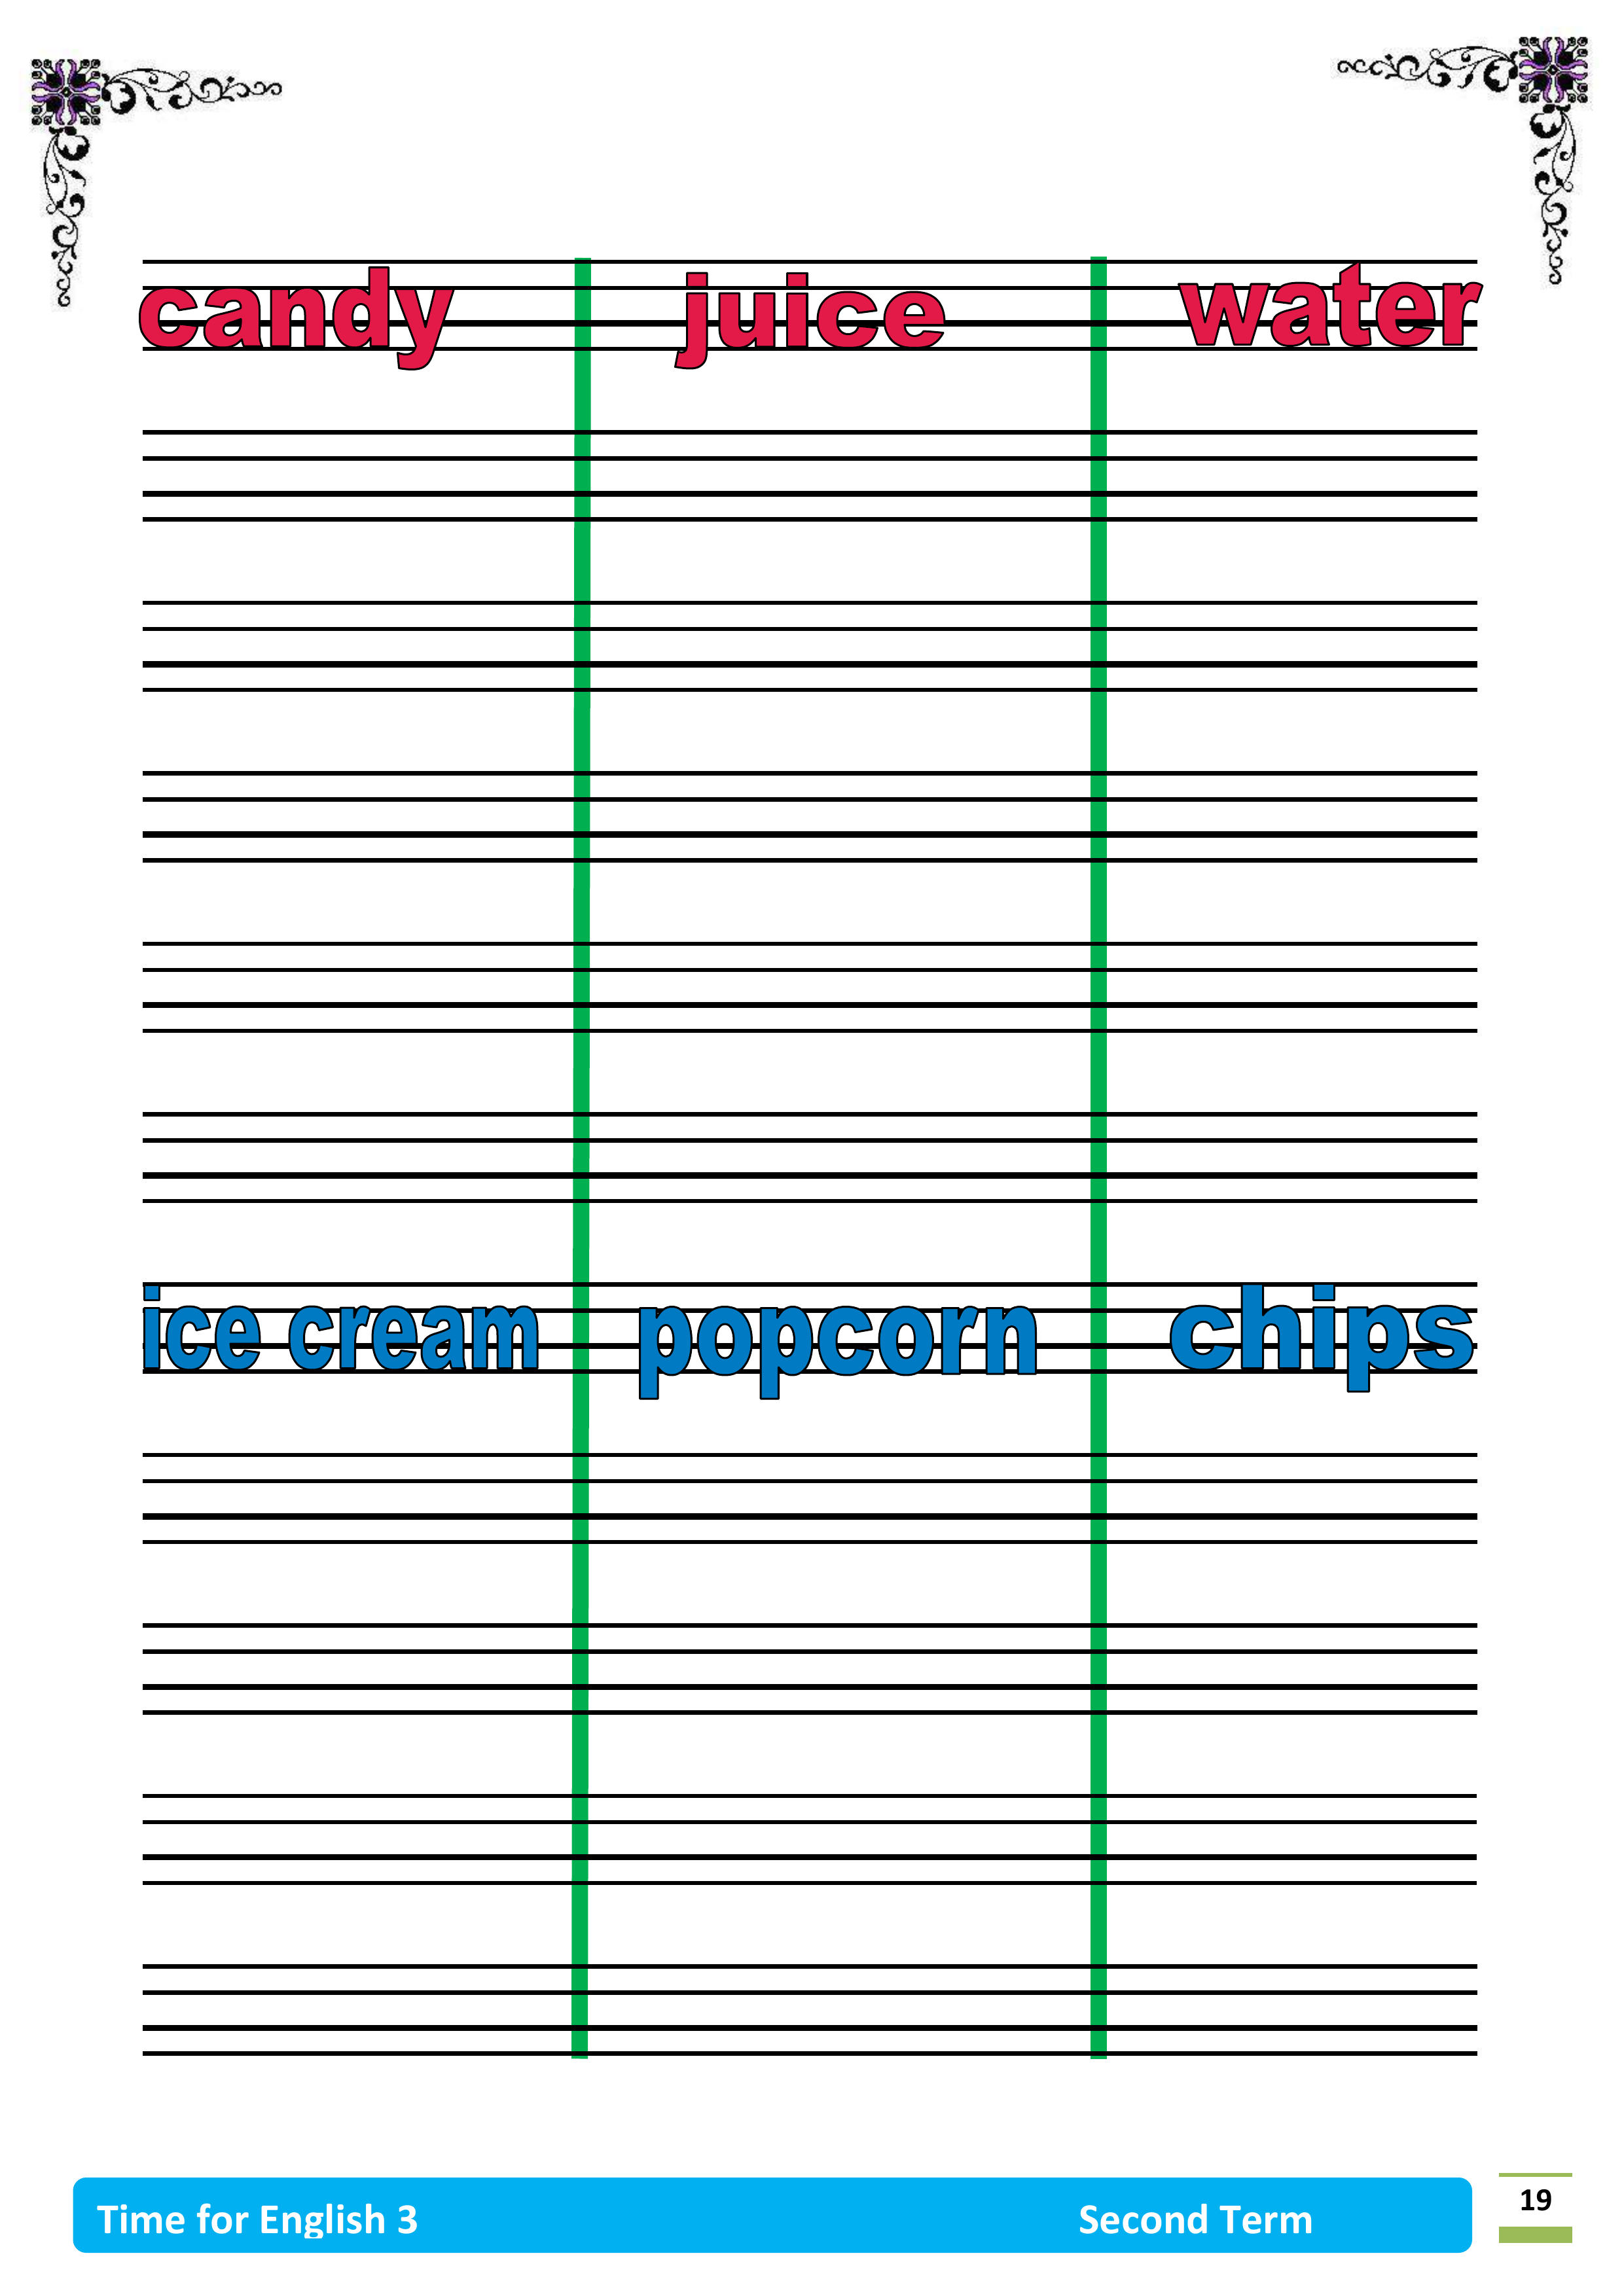 candy juice water
ice cream popcorn chips
Time for English 3 Second Term
19